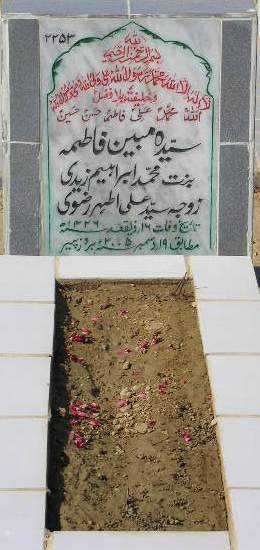 ۲۲۵۳
بسم الله الرحمن الرحیم
لا اله الا الله محمد رسول الله علی ولی الله وصی رسول الله
وخلیفته بلا فصل
الله محمد علی فاطمہ حسن حسین
سیدہ مبین فاطمہ
بنت محمد ابراہیم زیدی
زوجہ سید علی اطہر رضوی
تاریخ وفات ۱۶ ذیقعد ۱۴۲۶ھ
مطابق ۱۹ دسمبر ۲۰۰۵ء بروز پیر